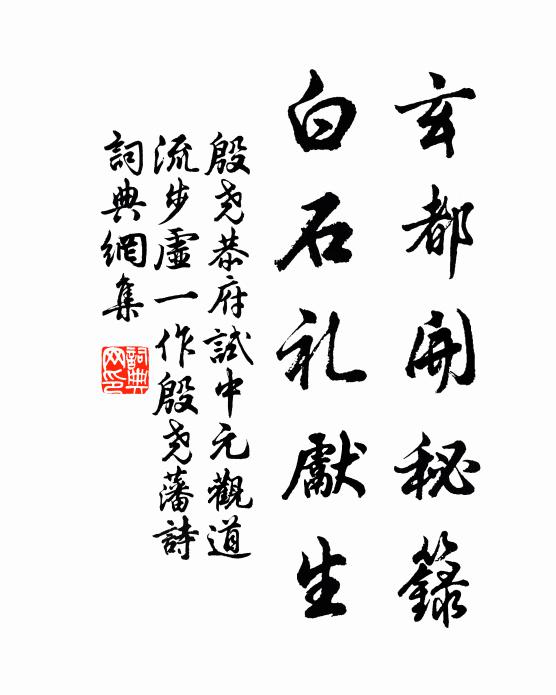 玄都開秘籙
白石礼獻生
殷尧恭府試中元觀道
流步虛一作殷尧藩詩
詞典網集
詞典
网印